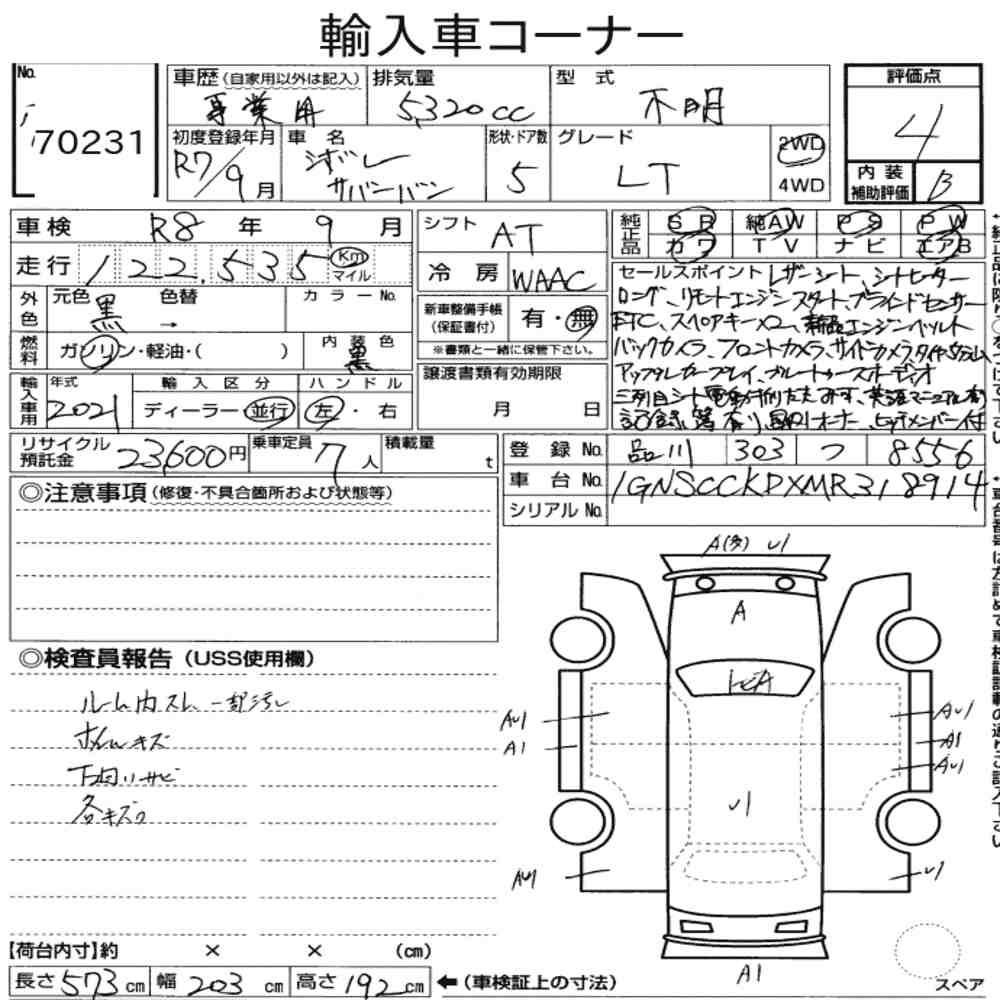 輸入車コーナー
No. 70231
車歴(自家用以外は記入) 事業用
排気量 5320cc
型式 不明
評価点 4
内装補助評価 B
初度登録年月 R7/9月
車名 シボレー サバーバン
形状・ドア数 5
グレード LT
2WD
4WD
車検 R8年 9月
走行 122,535 Km マイル
シフト AT
冷房 WAAC
純正品 SR 純AW PS PW
カワ TV ナビ エアB
外色 元色 黒 色替 → カラーNo.
燃料 ガソリン・軽油・( ) 内装色 黒
新車整備手帳(保証書付) 有・無
※書類と一緒に保管下さい。
輸入車用 年式 2021 輸入区分 ディーラー・並行 ハンドル 左・右
譲渡書類有効期限 月 日
セールスポイント レザーシート、シートヒーター
ロング、リモートエンジンスタート、ブラインドセンサー
ETC、スペアキー×2、新品エンジンベルト
バックカメラ、フロントカメラ、サイドカメラ、タイヤ
アップルカープレイ、ブルートゥースオーディオ
三列目シート電動折りたたみ可、英語マニュアル有
記録簿有り、取りオーナー、ヒッチメンバー付
リサイクル預託金 23,600円 乗車定員 7人 積載量 t
登録No. 品川 303 つ 8556
車台No. 1GNSCCKDXMR318914
シリアルNo.
◎注意事項(修復・不具合箇所および状態等)
◎検査員報告(USS使用欄)
ルーム内スレ、一部汚レ
ホイルキズ
下回りサビ
各キズ
A(多) U1
A
AU1
A1
AU1
A1
AU1
U1
AU1
U1
A1
スペア
【荷台内寸】約 × × (cm)
長さ 573 cm 幅 203 cm 高さ 192 cm ←(車検証上の寸法)